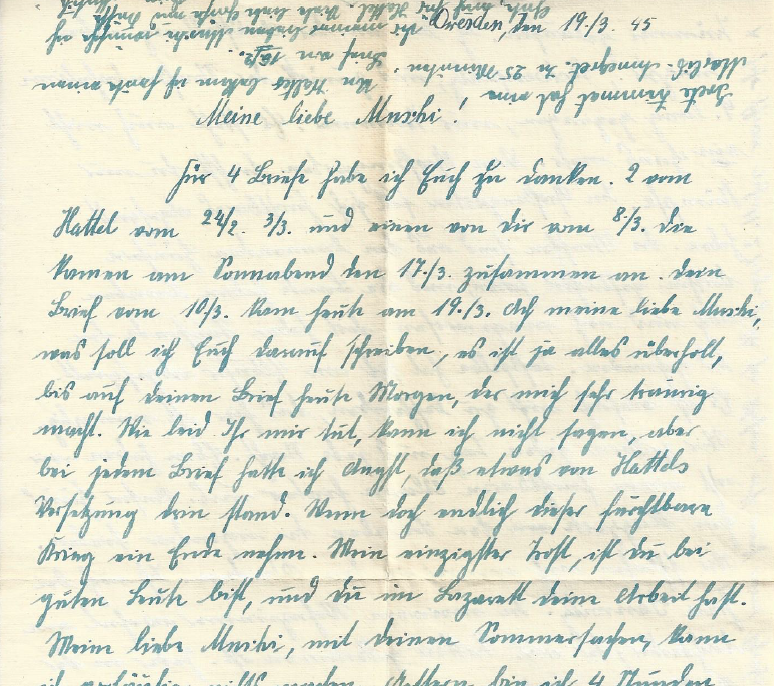 Dresden, den 19./3. 45
Meine liebe Muschi!
Für 4 Briefe habe ich Euch zu danken. 2 vom
Hattel vom 24/2. 3/3. und einen von dir vom 8/3. die
kamen am Sonnabend den 17./3. zusammen an. dein
Brief vom 10/3. kam heute am 19./3. Ach meine liebe Muschi,
was soll ich Euch darauf schreiben, es ist ja alles überholt,
bis auf deinen Brief heute Morgen, der mich sehr traurig
macht. Wie leid Ihr mir tut, kann ich nicht sagen, aber
bei jedem Brief hatte ich Angst, daß etwas von Hattels
Versetzung drin stand. Wenn doch endlich dieser furchtbare
Krieg ein Ende nehm. Mein einzigster Trost, ist du bei
guten Leute bist, und du im Lazarett deine Arbeit hast.
Meine liebe Muschi, mit deinen Sommersachen, kann
ich nichts machen. Gestern bin ich 4 Stunden